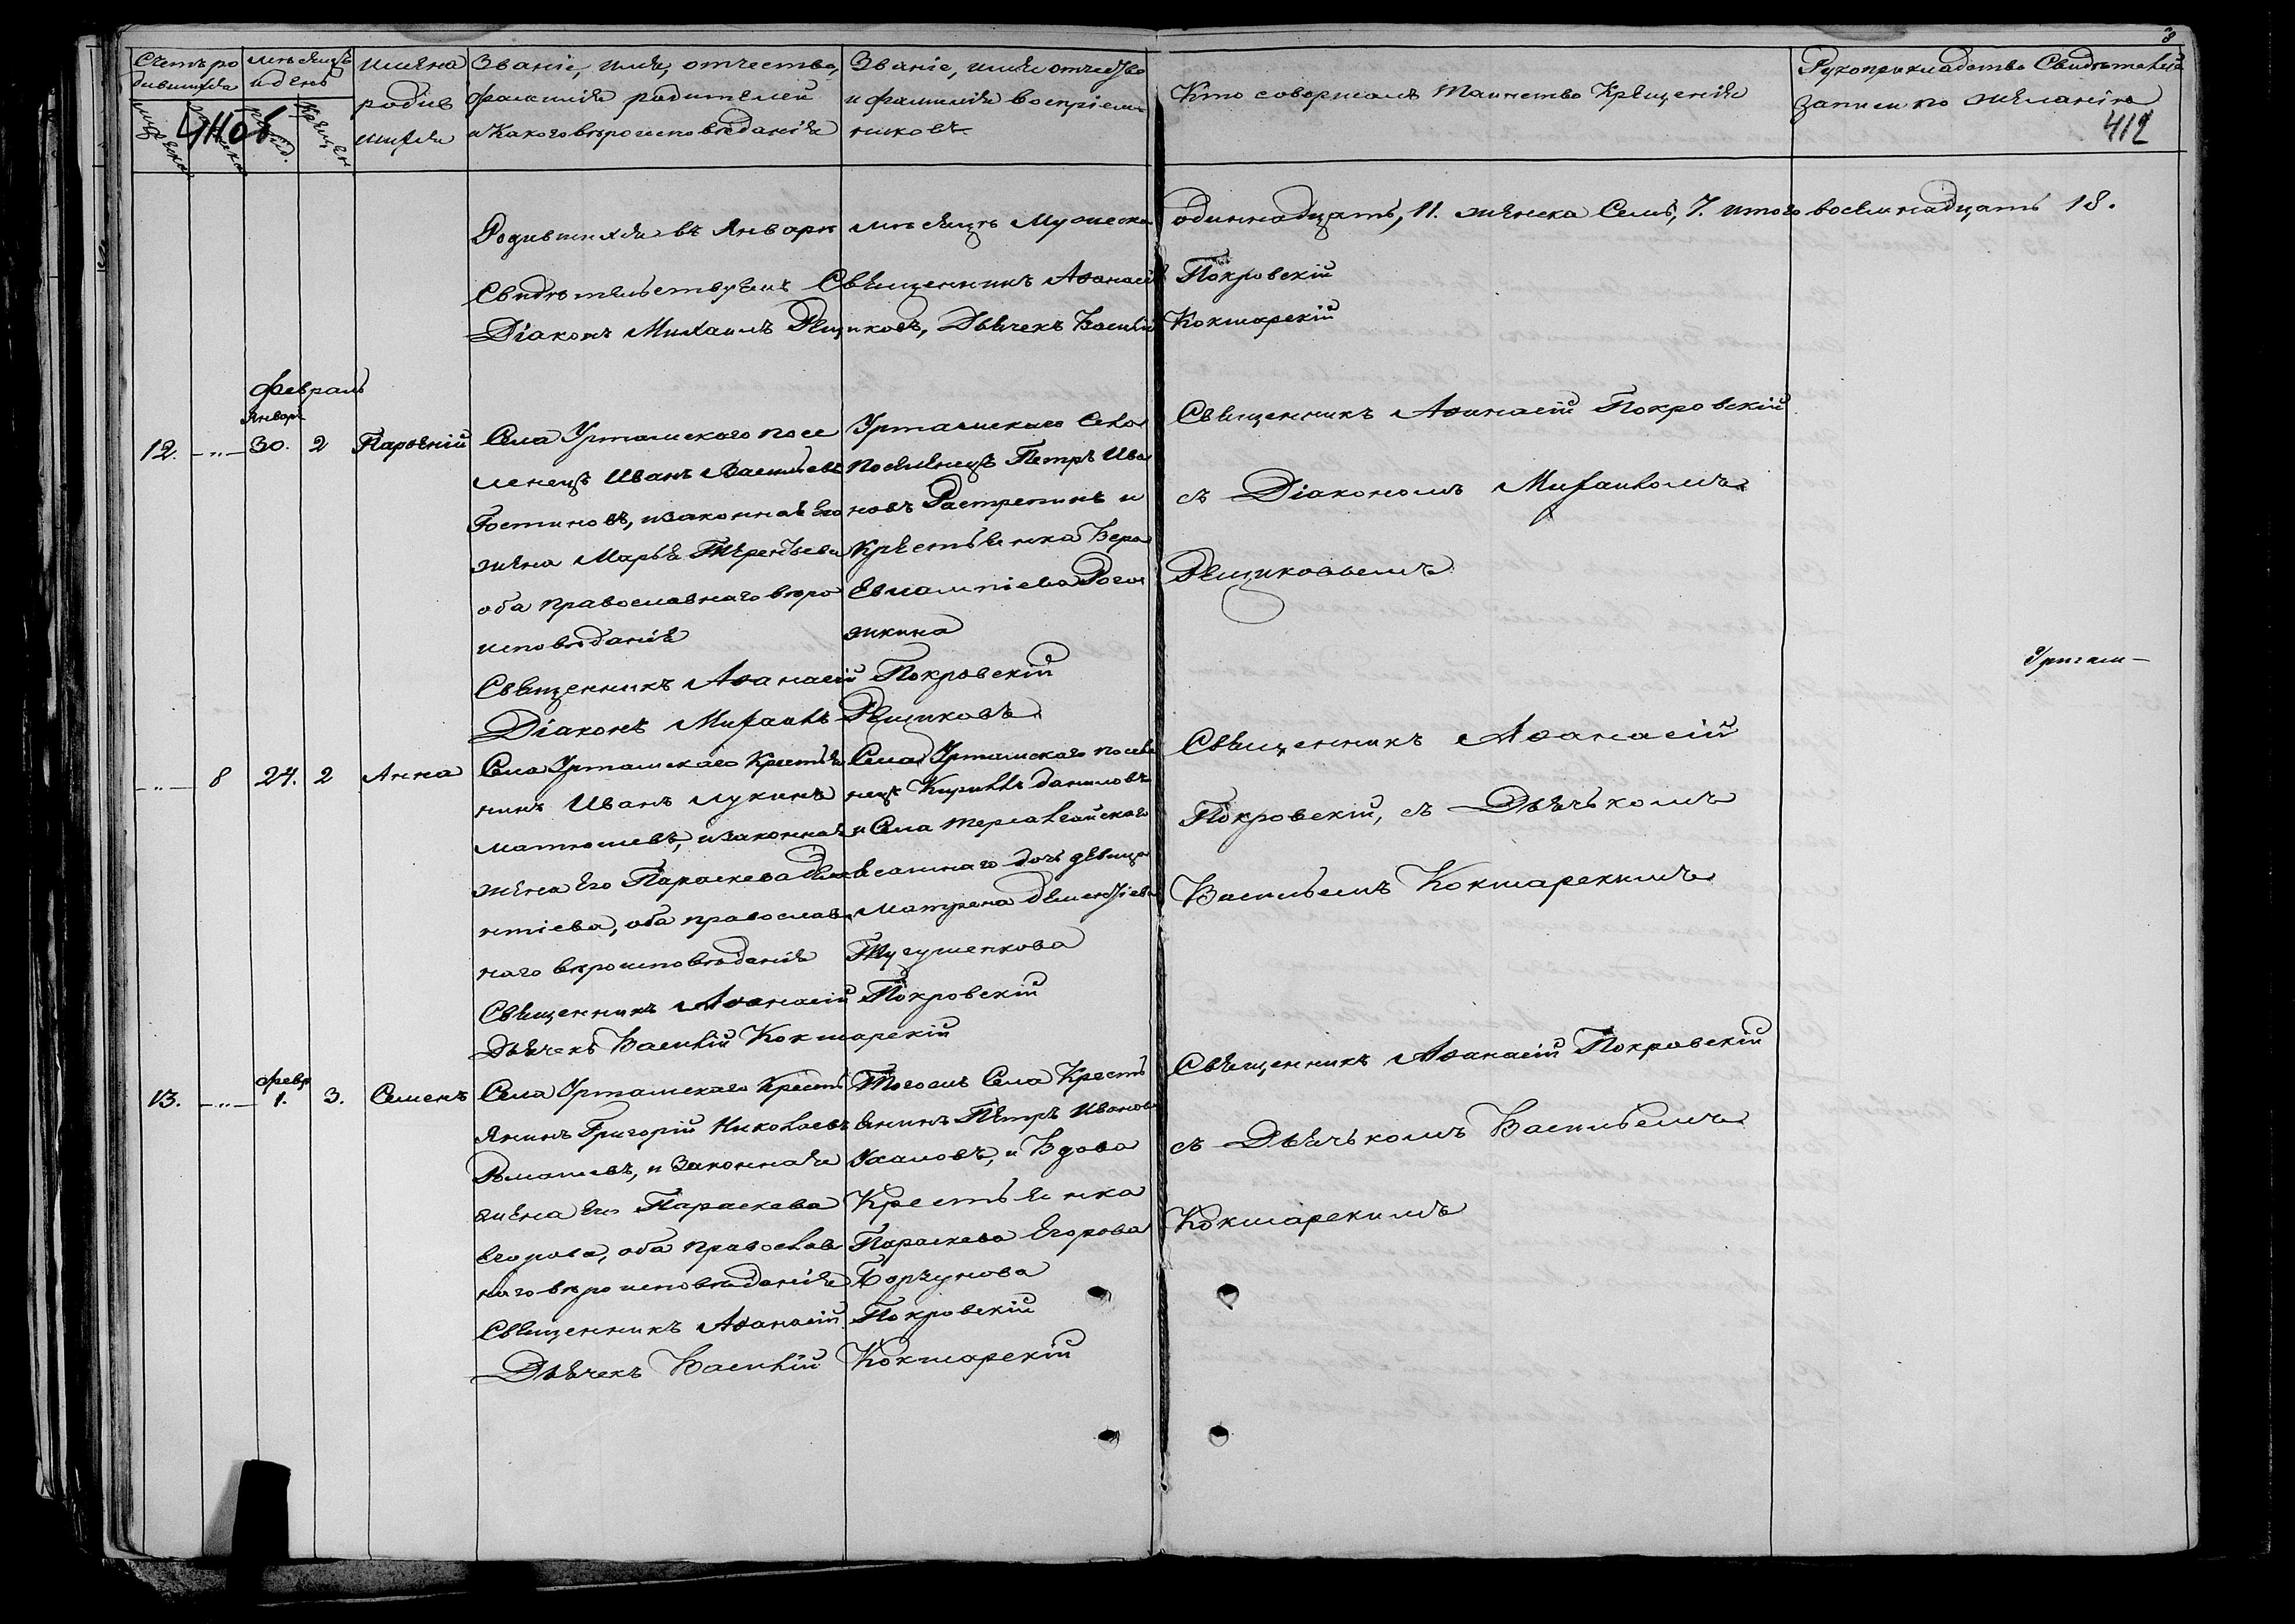 Счетъ ро
дившихся
мѣсяцъ
и день
имена
родив
шихся
Званіе, имя, отчество,
фамилія родителей
и какого вѣроисповѣданія
Званіе, имя отчество
и фамилія воспріем
никовъ
Кто совершалъ таинство крещенія
Рукоприкладство свидѣтелей
записи по желанію
3
412
Родившихся въ Январѣ мѣсяцѣ мужеска одиннадцать, 11. женска семь, 7. итого восемнадцать 18.
Свидѣтельствуемъ Священникъ Аѳанасій Покровскій
Діаконъ Михаилъ Рещиковъ, Дьячекъ Василій Кокшарскій
Февраль
12. —„— Январ 30. 2 Парѳеній
Села Уртамскаго посе
ленецъ Иванъ Васильевъ
Гостиновъ, и законная его
жена Марья Терентьева
оба православнаго вѣро
исповѣданія
Уртамскаго села
поселенецъ Петръ Ива
новъ Растрепинъ и
крестьянка Вера
Евлампіева Рого
жкина
Священникъ Аѳанасій Покровскій
съ Діакономъ Михаиломъ
Рещиковымъ
Священникъ Аѳанасій Покровскій
Діаконъ Михаилъ Рещиковъ
—„— 8 27. 2 Анна
Села Уртамскаго крестья
нинъ Иванъ Лукинъ
Матюшевъ, и законная
жена его Параскева
нтіева, оба православ
наго вѣроисповѣданія
Села Уртамскаго поселе
нецъ Кириллъ Даниловъ
и села
дочь девица
Матрена Дементіева
Священникъ Аѳанасій
Покровскій, съ Дьячькомъ
Васильемъ Кокшарскимъ
Священникъ Аѳанасій Покровскій
Дьячекъ Василій Кокшарскій
13. —„— февр 1. 3. Семенъ
Села Уртамскаго кресть
янинъ Григорій Николаевъ
и законная
жена его Параскева
Егорова, оба православ
наго вѣроисповѣданія
Тогожъ села кресть
янинъ Петръ Ивановъ
Ухановъ, и вдова
крестьянка
Параскева Егорова
Борзунова
Священникъ Аѳанасій Покровскій
съ Дьячькомъ Васильемъ
Кокшарскимъ
Священникъ Аѳанасій Покровскій
Дьячекъ Василій Кокшарскій